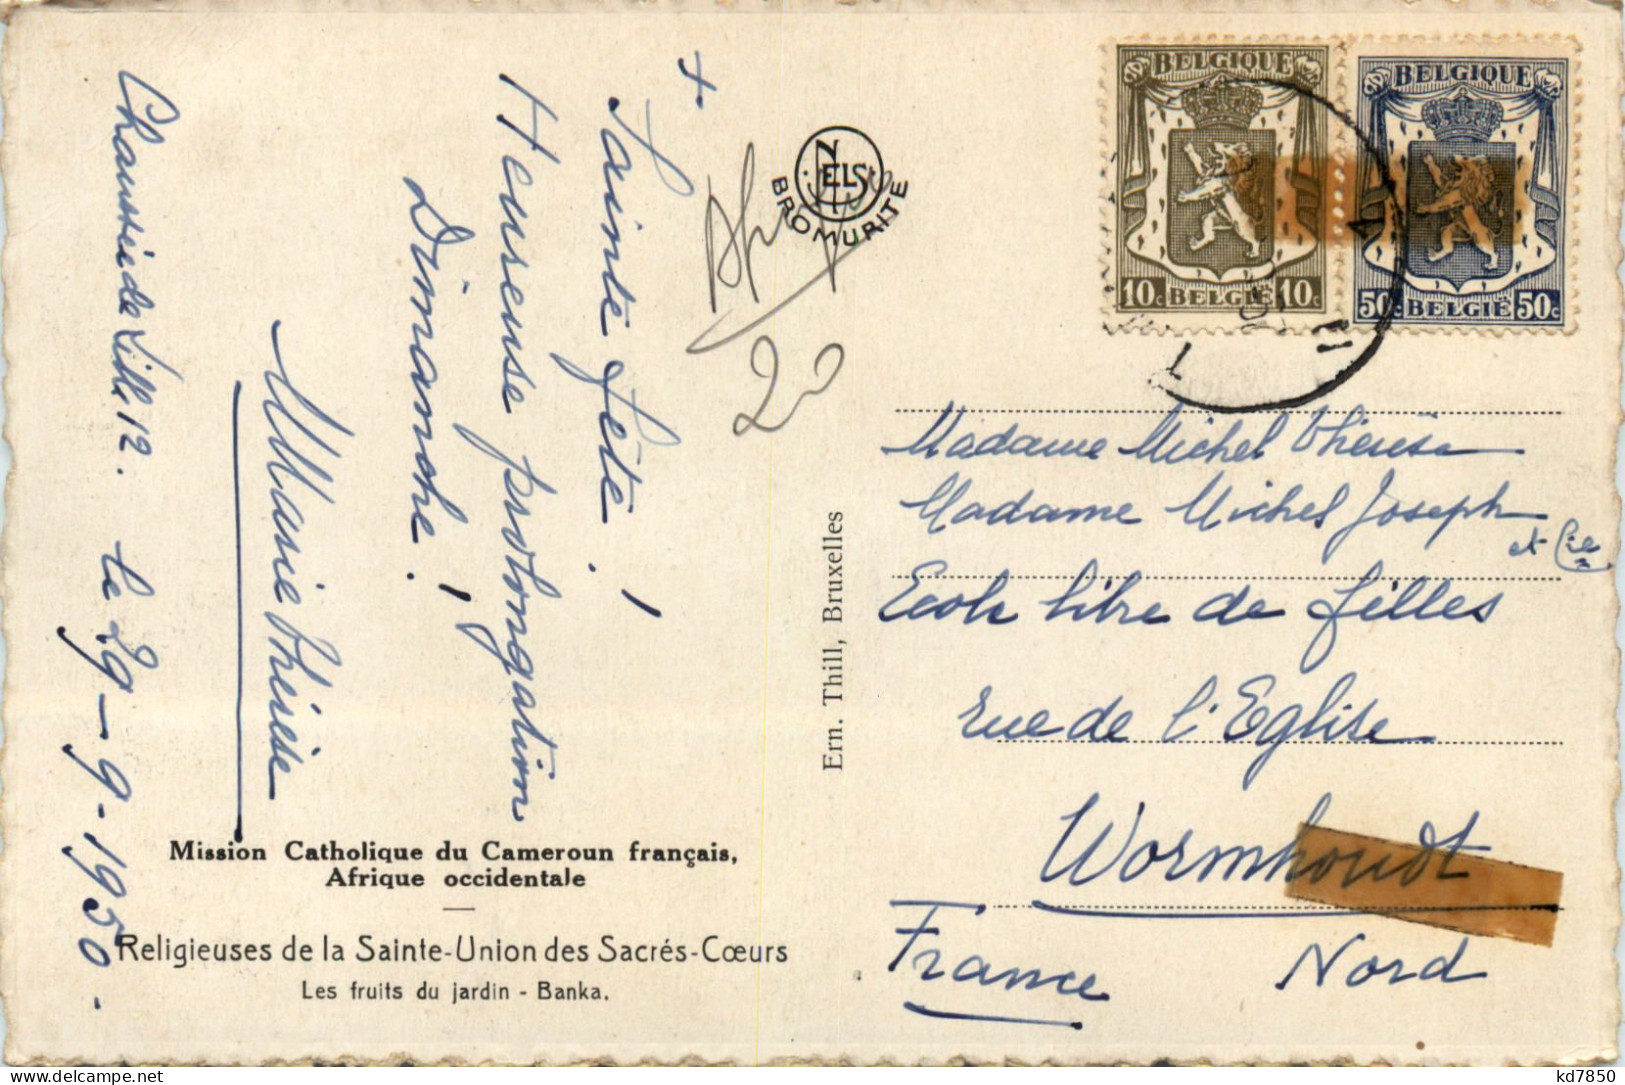 +
Sainte fête !
Heureuse prolongation !
Dimanche !
M Marie Thérèse
Chaussée de Lille 12. le 29-9-1950.
20
NELS
BROMURITE
BELGIQUE
10c BELGIË 10c
BELGIQUE
50c BELGIË 50c
Madame Michel Thérèse
Madame Michel Joseph
et Cie
Ecole libre de filles
rue de l'Eglise
Wormhoudt
France Nord
Ern. Thill, Bruxelles
Mission Catholique du Cameroun français,
Afrique occidentale
Religieuses de la Sainte-Union des Sacrés-Cœurs
Les fruits du jardin - Banka.
kd7850